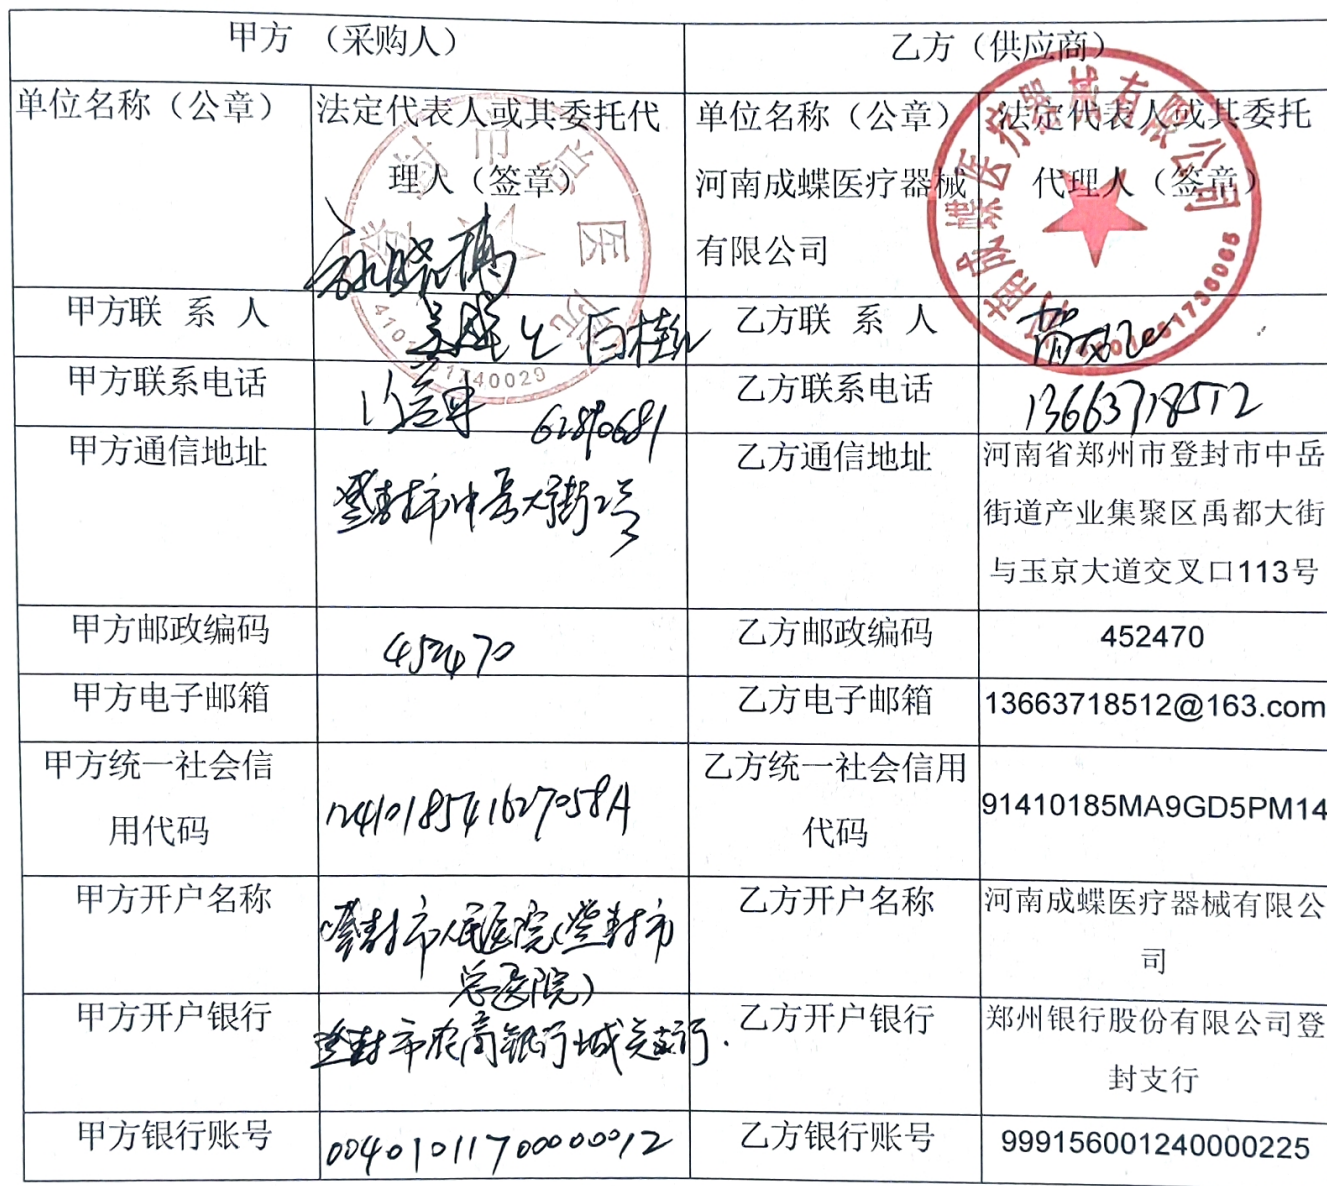 甲方 （采购人）
乙方（供应商）
单位名称（公章）
法定代表人或其委托代
理人（签章）
单位名称（公章）
河南成蝶医疗器械
有限公司
法定代表人或其委托
代理人（签章）
登封市总医院
河南成蝶医疗器械有限公司
甲方联 系 人
乙方联 系 人
甲方联系电话
62890681
乙方联系电话
13663718512
甲方通信地址
登封市中岳大街2号
乙方通信地址
河南省郑州市登封市中岳
街道产业集聚区禹都大街
与玉京大道交叉口113号
甲方邮政编码
452470
乙方邮政编码
452470
甲方电子邮箱
乙方电子邮箱
13663718512@163.com
甲方统一社会信
用代码
1241018541627058A
乙方统一社会信用
代码
91410185MA9GD5PM14
甲方开户名称
登封市人民医院（登封市
总医院）
乙方开户名称
河南成蝶医疗器械有限公
司
甲方开户银行
登封市农商银行城关支行.
乙方开户银行
郑州银行股份有限公司登
封支行
甲方银行账号
00401011700000012
乙方银行账号
999156001240000225